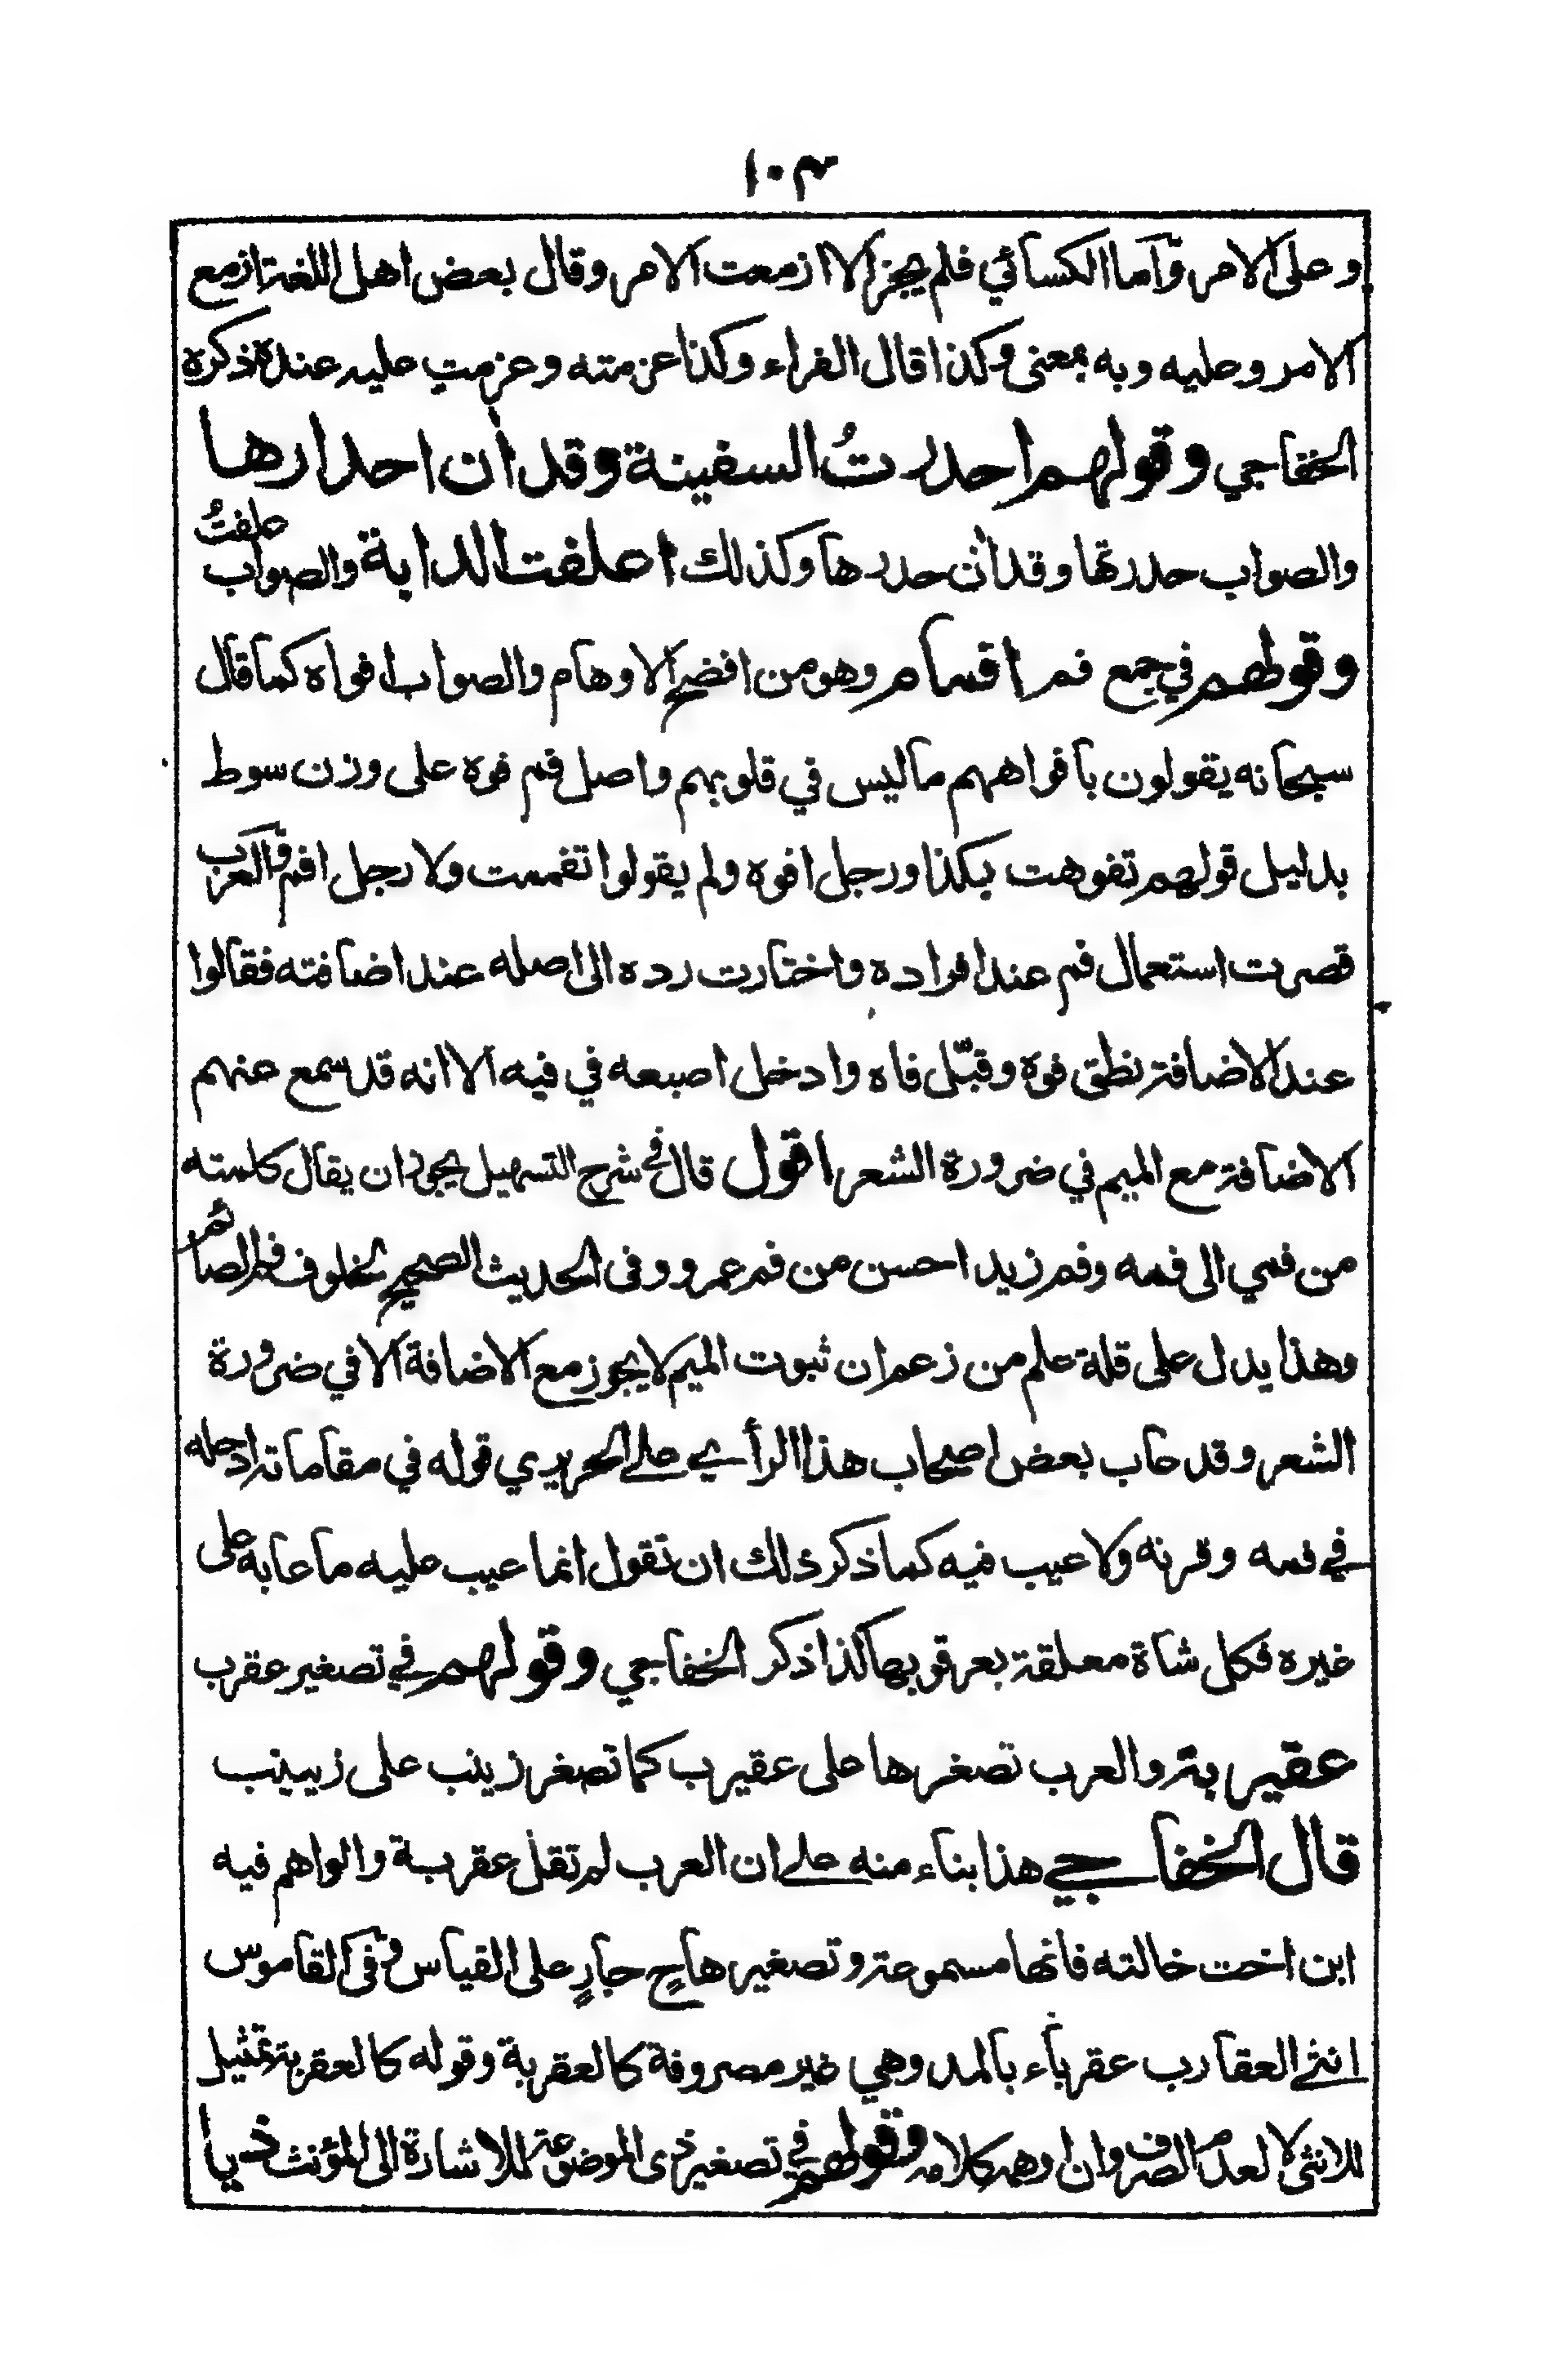 ١٠٣
وعلى الامر وآما الكسائي فلم يجز الا ازمعت الامر وقال بعض اهل اللغة ازمع
الامر وعليه وبه بمعنى وكذا قال الفراء وكذا عزمته وعزمت عليه عنده ذكره
الخفاجي وقولهم احدرتُ السفينة وقد أن احدارها
والصواب حدرتها وقد أن حدرها وكذلك اعلفت الدابة والصواب علفتُ
وقولهم في جمع فم اقمام وهو من افضح الاوهام والصواب افواه كما قال
سبحانه يقولون بافواههم ماليس في قلوبهم واصل فم فوه على وزن سوط
بدليل قولهم تفوهت بكذا ورجل افوه ولم يقولوا تفممت ولا رجل افم والعرب
قصرت استعمال فم عند افراده واختارت رده الى اصله عند اضافته فقالوا
عند الاضافة نطق فوه وقبّل فاه وادخل اصبعه في فيه الا انه قد سمع عنهم
الاضافة مع الميم في ضرورة الشعر اقول قال في شرح التسهيل يجوز ان يقال كلمته
من فمي الى فمه وفم زيد احسن من فم عمرو وفى الحديث الصحيح لخلوف فم الصائم
وهذا يدل على قلة علم من زعم ان ثبوت الميم لا يجوز مع الاضافة الا في ضرورة
الشعر وقد عاب بعض اصحاب هذا الرأي على الحريري قوله في مقاماته ادخله
في فمه وقرنه ولا عيب فيه كما ذكر ذلك ان تقول انما عيب عليه ما عابه على
غيره فكل شاة معلقة بعرقوبها كذا ذكر الخفاجي وقولهم في تصغير عقرب
عقيربة والعرب تصغرها على عقيرب كما تصغر زينب على زيينب
قال الخفاجي هذا بناء منه على ان العرب لم تقل عقربة والواهم فيه
ابن اخت خالته فانها مسموعة وتصغيرها ح جارٍ على القياس وفى القاموس
انثى العقارب عقرباء بالمد وهي غير مصروفة كالعقربة وقوله كالعقربة تمثيل
للانثى لا لعدم الصرف وان اوهمه كلامه وقولهم في تصغير ذى الموضوعة للاشارة الى المؤنث ذيا